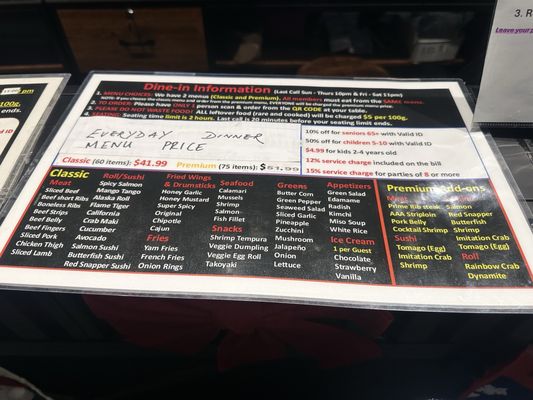 3. R
Leave your p
pm
100g.
ends.
Dine-in Information (Last Call Sun - Thurs 10pm & Fri - Sat 11pm)
1. MENU CHOICES: We have 2 menus (Classic and Premium). All members must eat from the SAME menu.
NOTE: If you choose the classic menu and order from the premium menu, EVERYONE will be charged the premium menu price.
2. TO ORDER: Please have ONLY 1 person scan & order from the QR CODE at your table.
3. PLEASE DO NOT WASTE FOOD! ALL leftover food (rare and cooked) will be charged $5 per 100g.
4. SEATING: Seating time limit is 2 hours. Last call is 20 minutes before your seating limit ends.
EVERYDAY DINNER
MENU PRICE
Classic (60 items): $41.99 Premium (75 items): $51.99
10% off for seniors 65+ with Valid ID
50% off for children 5-10 with Valid ID
$4.99 for kids 2-4 years old
12% service charge included on the bill
15% service charge for parties of 8 or more
Classic
Meat
Sliced Beef
Beef short Ribs
Boneless Ribs
Beef Strips
Beef Belly
Beef Fingers
Sliced Pork
Chicken Thigh
Sliced Lamb
Roll/Sushi
Spicy Salmon
Mango Tango
Alaska Roll
Flame Tiger
California
Crab Maki
Cucumber
Avocado
Salmon Sushi
Butterfish Sushi
Red Snapper Sushi
Fried Wings
& Drumsticks
Honey Garlic
Honey Mustard
Super Spicy
Original
Chipotle
Cajun
Fries
Yam Fries
French Fries
Onion Rings
Seafood
Calamari
Mussels
Shrimp
Salmon
Fish Fillet
Snacks
Shrimp Tempura
Veggie Dumpling
Veggie Egg Roll
Takoyaki
Greens
Butter Corn
Green Pepper
Seaweed Salad
Sliced Garlic
Pineapple
Zucchini
Mushroom
Jalapeño
Onion
Lettuce
Appetizers
Green Salad
Edamame
Radish
Kimchi
Miso Soup
White Rice
Ice Cream
1 per Guest
Chocolate
Strawberry
Vanilla
Premium Add-ons
Prime Rib steak
AAA Striploin
Pork Belly
Cocktail Shrimp
Sushi
Tomago (Egg)
Imitation Crab
Shrimp
Salmon
Red Snapper
Butterfish
Shrimp
Imitation Crab
Tomago (Egg)
Roll
Rainbow Crab
Dynamite